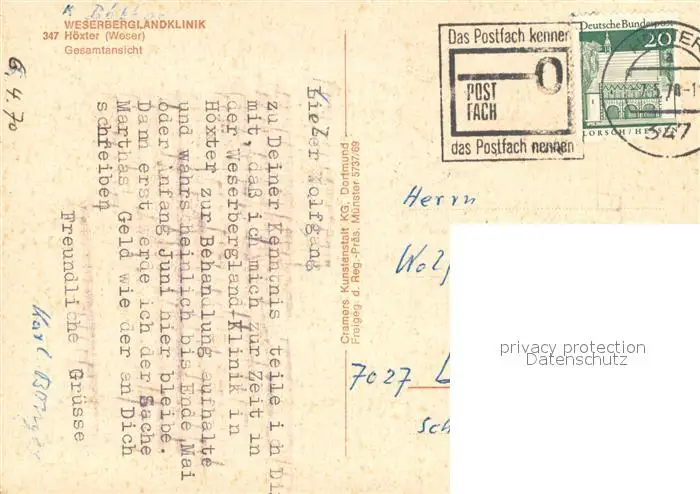 WESERBERGLANDKLINIK
347 Höxter (Weser)
Gesamtansicht
6.4.70
Lieber Wolfgang
zu Deiner Kenntnis teile ich Di
mit, daß ich mich zur Zeit in
der Weserbergland-Klinik in
Höxter zur Behandlung aufhalte
und wahrscheinlich bis Ende Mai
oder Anfang Juni hier bleibe.
Dann erst werde ich der Sache
Marthas Geld wie der an Dich
schreiben
Freundliche Grüsse
Karl
Cramers Kunstanstalt KG, Dortmund
Freigeg. d. Reg.-Präs. Münster 5737/69
Das Postfach kennen
POST
FACH
das Postfach nennen
Deutsche Bundespost
20
LORSCH/HE
a
347
Herrn
Wolf
7027 L
Sch
privacy protection
Datenschutz